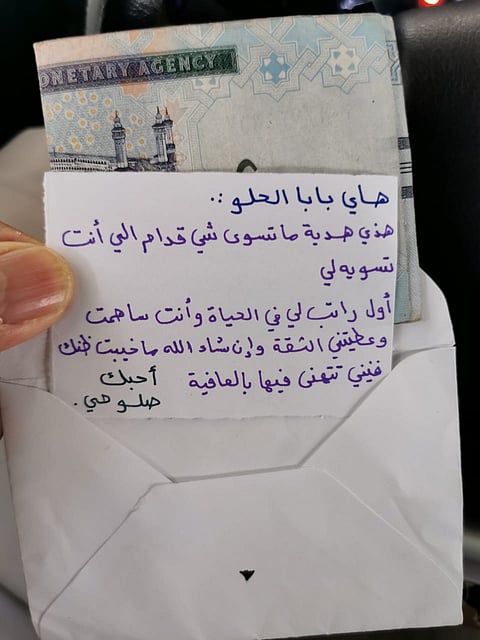 ONETARY AGENCY
هاي بابا الحلو :.
هذي هدية ما تسوى شي قدام الي أنت
تسويه لي
أول راتب لي في الحياة وأنت ساهمت
وعطيتني الثقة وإن شاء الله ما خيبت ظنك
فيني تتهنى فيها بالعافية
أحبك